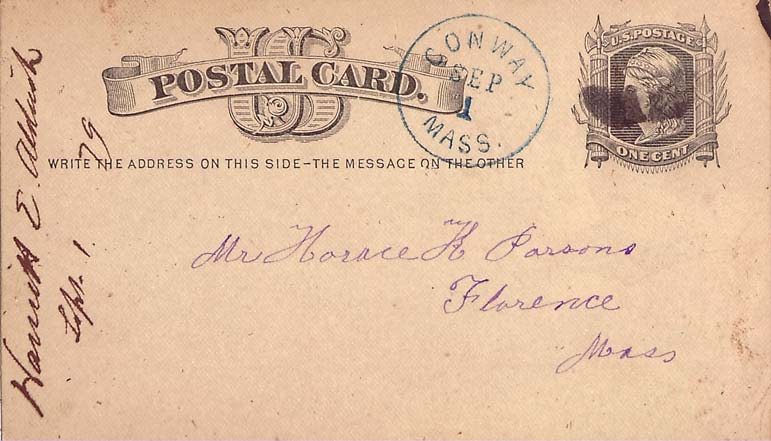 US
POSTAL CARD.
CONWAY
SEP
1
MASS.
U.S. POSTAGE
ONE CENT
WRITE THE ADDRESS ON THIS SIDE–THE MESSAGE ON THE OTHER
Mr Horace K Parsons
Florence
Mass
E.
Sept. 1. 79